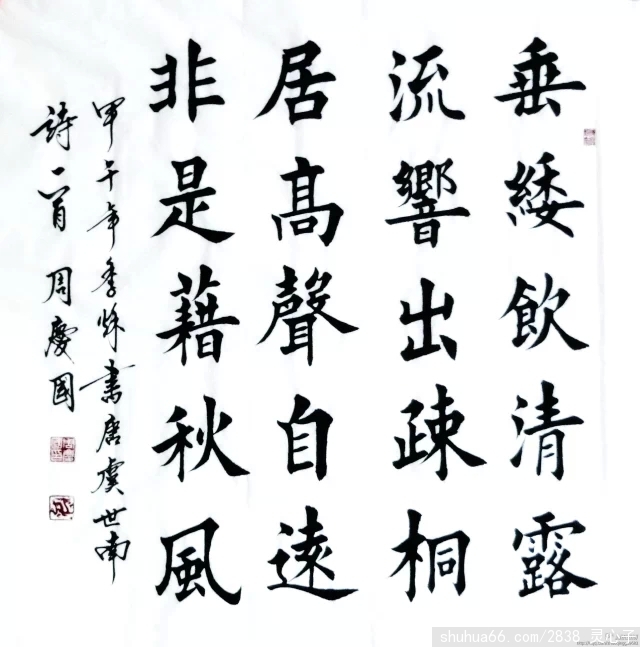 垂緌飲清露
流響出疎桐
居高聲自遠
非是藉秋風
甲午年季秋書唐虞世南
詩一首 周慶國
shuhua66.com/2838 灵心子